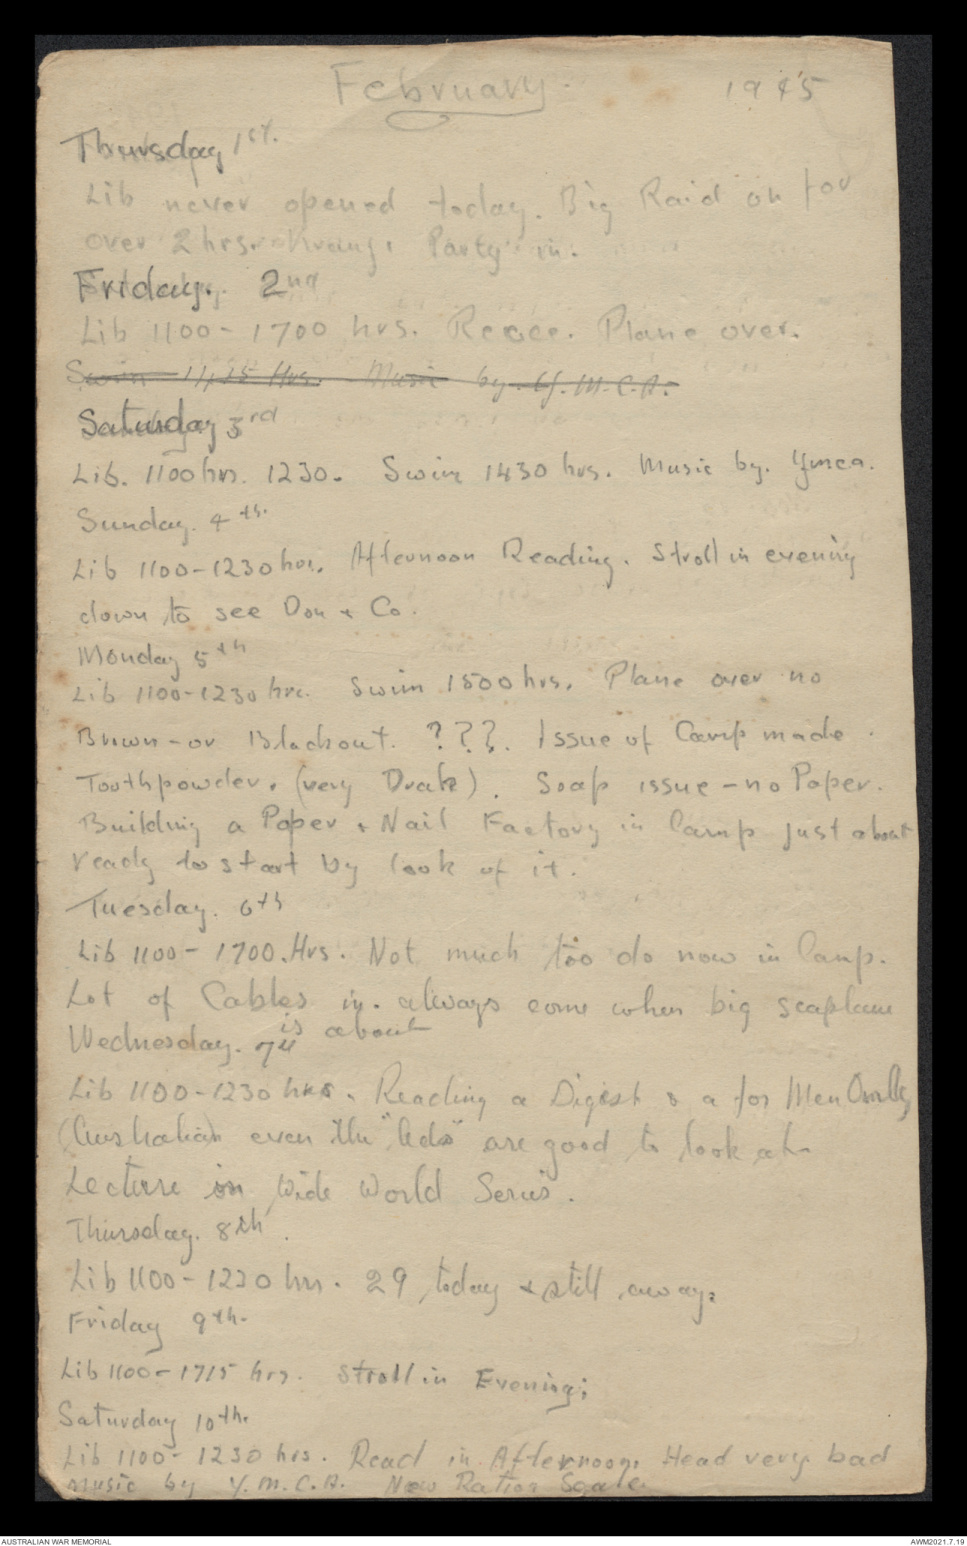 February. 1945
Thursday 1st.
Lib never opened today. Big Raid on for
over 2 hrs. Party in.
Friday. 2nd
Lib 1100 - 1700 hrs. Recce. Plane over.
Swim 1435 Hrs. Music by. Y.M.C.A.
Saturday 3rd
Lib. 1100 hrs. 1230. Swim 1430 hrs. Music by. Ymca.
Sunday. 4th.
Lib 1100-1230 hrs. Afternoon Reading. Stroll in evening
down to see Don & Co.
Monday 5th
Lib 1100-1230 hrs. Swim 1500 hrs. Plane over no
Brown-or Blackout. ???. Issue of Camp made.
Toothpowder. (very Drak). Soap issue - no Paper.
Building a Paper & Nail Factory in Camp just about
ready to start by look of it.
Tuesday. 6th
Lib 1100 - 1700. Hrs. Not much too do now in Camp.
Lot of Cables in. always come when big seaplane
is about
Wednesday. 7th
Lib 1100-1230 hrs. Reading a Digest & a for Men Only
(Australian) even the "Ads" are good to look at.
Lecture on Wide World Series.
Thursday. 8th.
Lib 1100 - 1230 hrs. 29 today & still away.
Friday 9th.
Lib 1100 - 1715 hrs. Stroll in Evening;
Saturday 10th.
Lib 1100 - 1230 hrs. Read in Afternoon. Head very bad
Music by Y.M.C.A. New Ration Scale.
AUSTRALIAN WAR MEMORIAL AWM2021.7.19